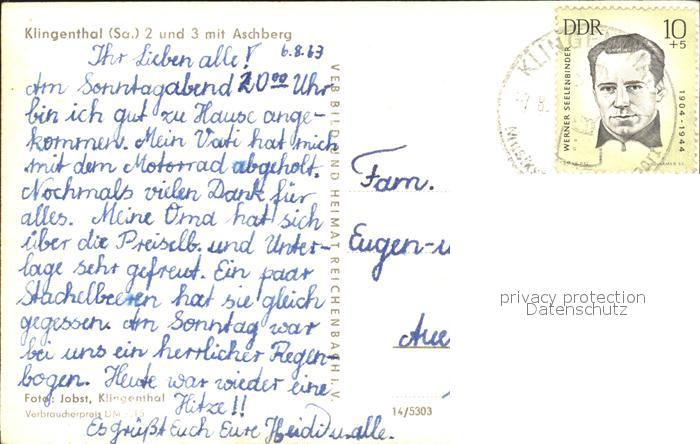 Klingenthal (Sa.) 2 und 3 mit Aschberg
Ihr Lieben alle! 6.8.63
Am Sonntagabend 20⁰⁰ Uhr
bin ich gut zu Hause ange-
kommen. Mein Vati hat mich
mit dem Motorrad abgeholt.
Nochmals vielen Dank für
alles. Meine Oma hat sich
über die Preiselb. und Unter-
lage sehr gefreut. Ein paar
Stachelbeeren hat sie gleich
gegessen. Am Sonntag war
bei uns ein herrlicher Regen-
bogen. Heute war wieder eine
Hitze!!
Es grüßt Euch Eure Heidi u. alle.
Foto: Jobst, Klingenthal
Verbraucherpreis DM -,15
14/5303
VEB BILD UND HEIMAT REICHENBACH I.V.
Fam.
Eugen-u
Aue
DDR 10
+5
WERNER SEELENBINDER
1904-1944
KLINGEN
privacy protection
Datenschutz